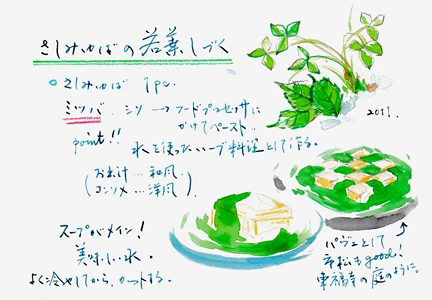 さしみゆばの若葉しづく
○さしみゆば 1pc.
ミツバ、シソ → フードプロセッサに
かけてペースト..
2011.
point!!
水を使ったハーブ料理として作る。
(お出汁…和風.
コンソメ…洋風.)
スープがメイン!
美味しい水。
よく冷やしてから、カットする。
パヴェとして
市松もgood!
東福寺の庭のように。